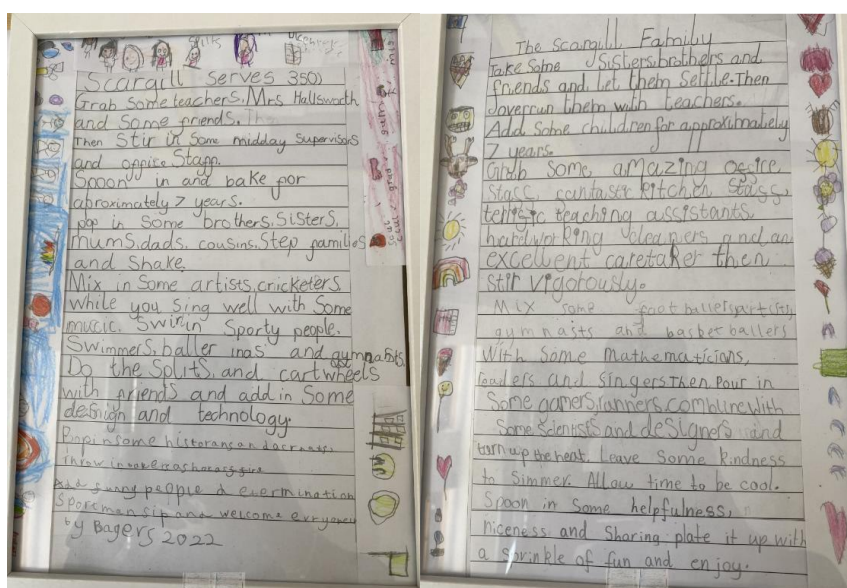 Scargill Serves 350)
Grab some teachers, Mrs Hallsworth
and some friends.
Then Stir in some midday supervisors
and office Staff.
Spoon in and bake for
aproximately 7 years.
pop in some brothers, sisters,
mums, dads, cousins, Step families
and shake.
Mix in some artists, cricketers,
while you sing well with some
music. Swirl in Sporty people.
Swimmers, baller inas and gymnasts.
Do the splits and cartwheels
with friends and add in some
design and technology.
Pop in some
throw in
Add funny people
Sportmansip and welcome
by Bagers 2022
The Scargill Family
Take Some Sisters, brothers and
friends and let them settle. Then
overrun them with teachers.
Add Some children for approximately
7 years.
Grab some amazing office
staff, fantastic kitchen staff,
terrific teaching assistants,
hardworking cleaners and an
excellent caretaker then
stir vigorously.
Mix some foot ballers, artists,
gymnaists and basket ballers
with some mathematicians,
readers and singers. Then Pour in
Some gamers, runners, combine with
Some scientists and designers and
turn up the heat. Leave Some kindness
to Simmer. Allow time to be cool.
Spoon in some helpfulness,
niceness and Sharing plate it up with
a sprinkle of fun and enjoy.